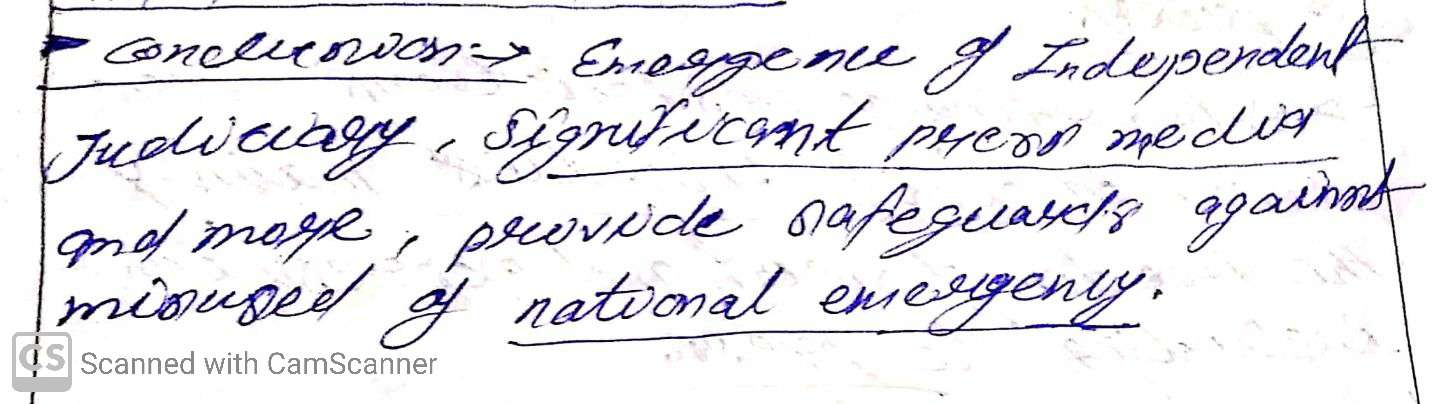 Conclusion:→ Emergence of Independent
Judiciary, Significant press media
and more, provide safeguards against
misused of national emergency.
CS Scanned with CamScanner